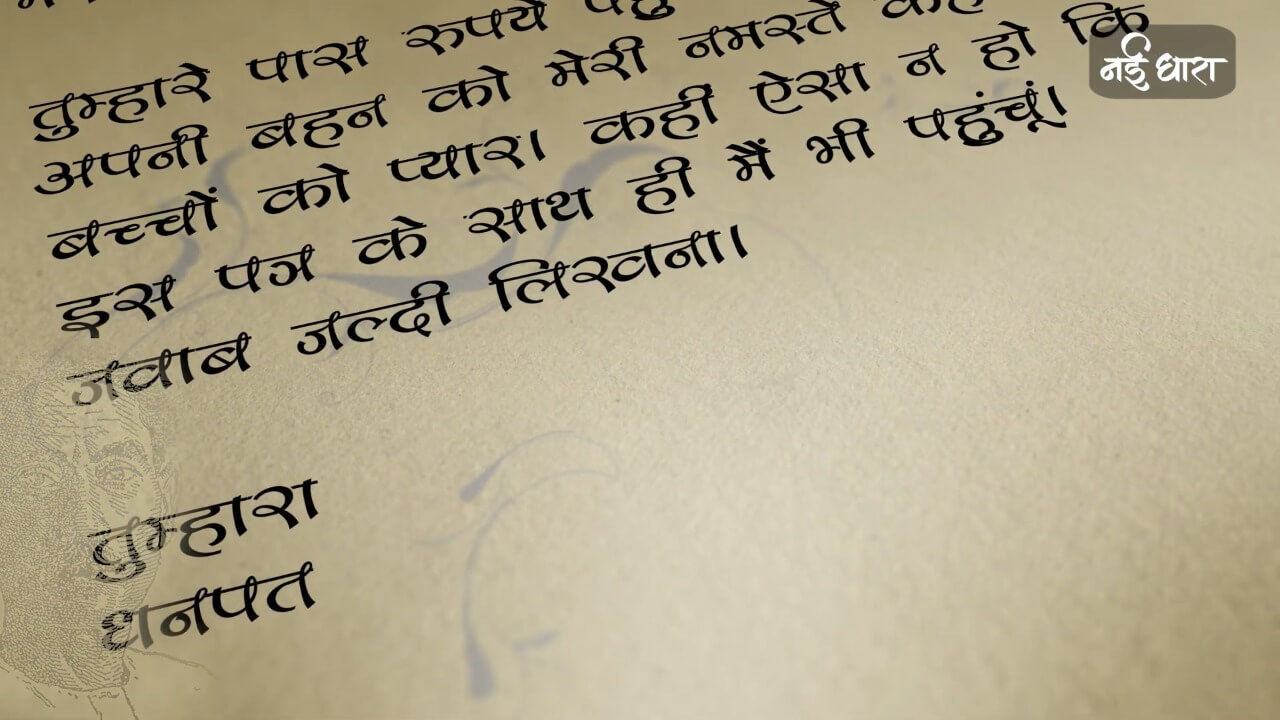 तुम्हारे पास रुपये
अपनी बहन को मेरी नमस्ते
बच्चों को प्यार। कहीं ऐसा न हो कि
इस पत्र के साथ ही मैं भी पहुंचूं।
जवाब जल्दी लिखना।
तुम्हारा
धनपत
नई धारा